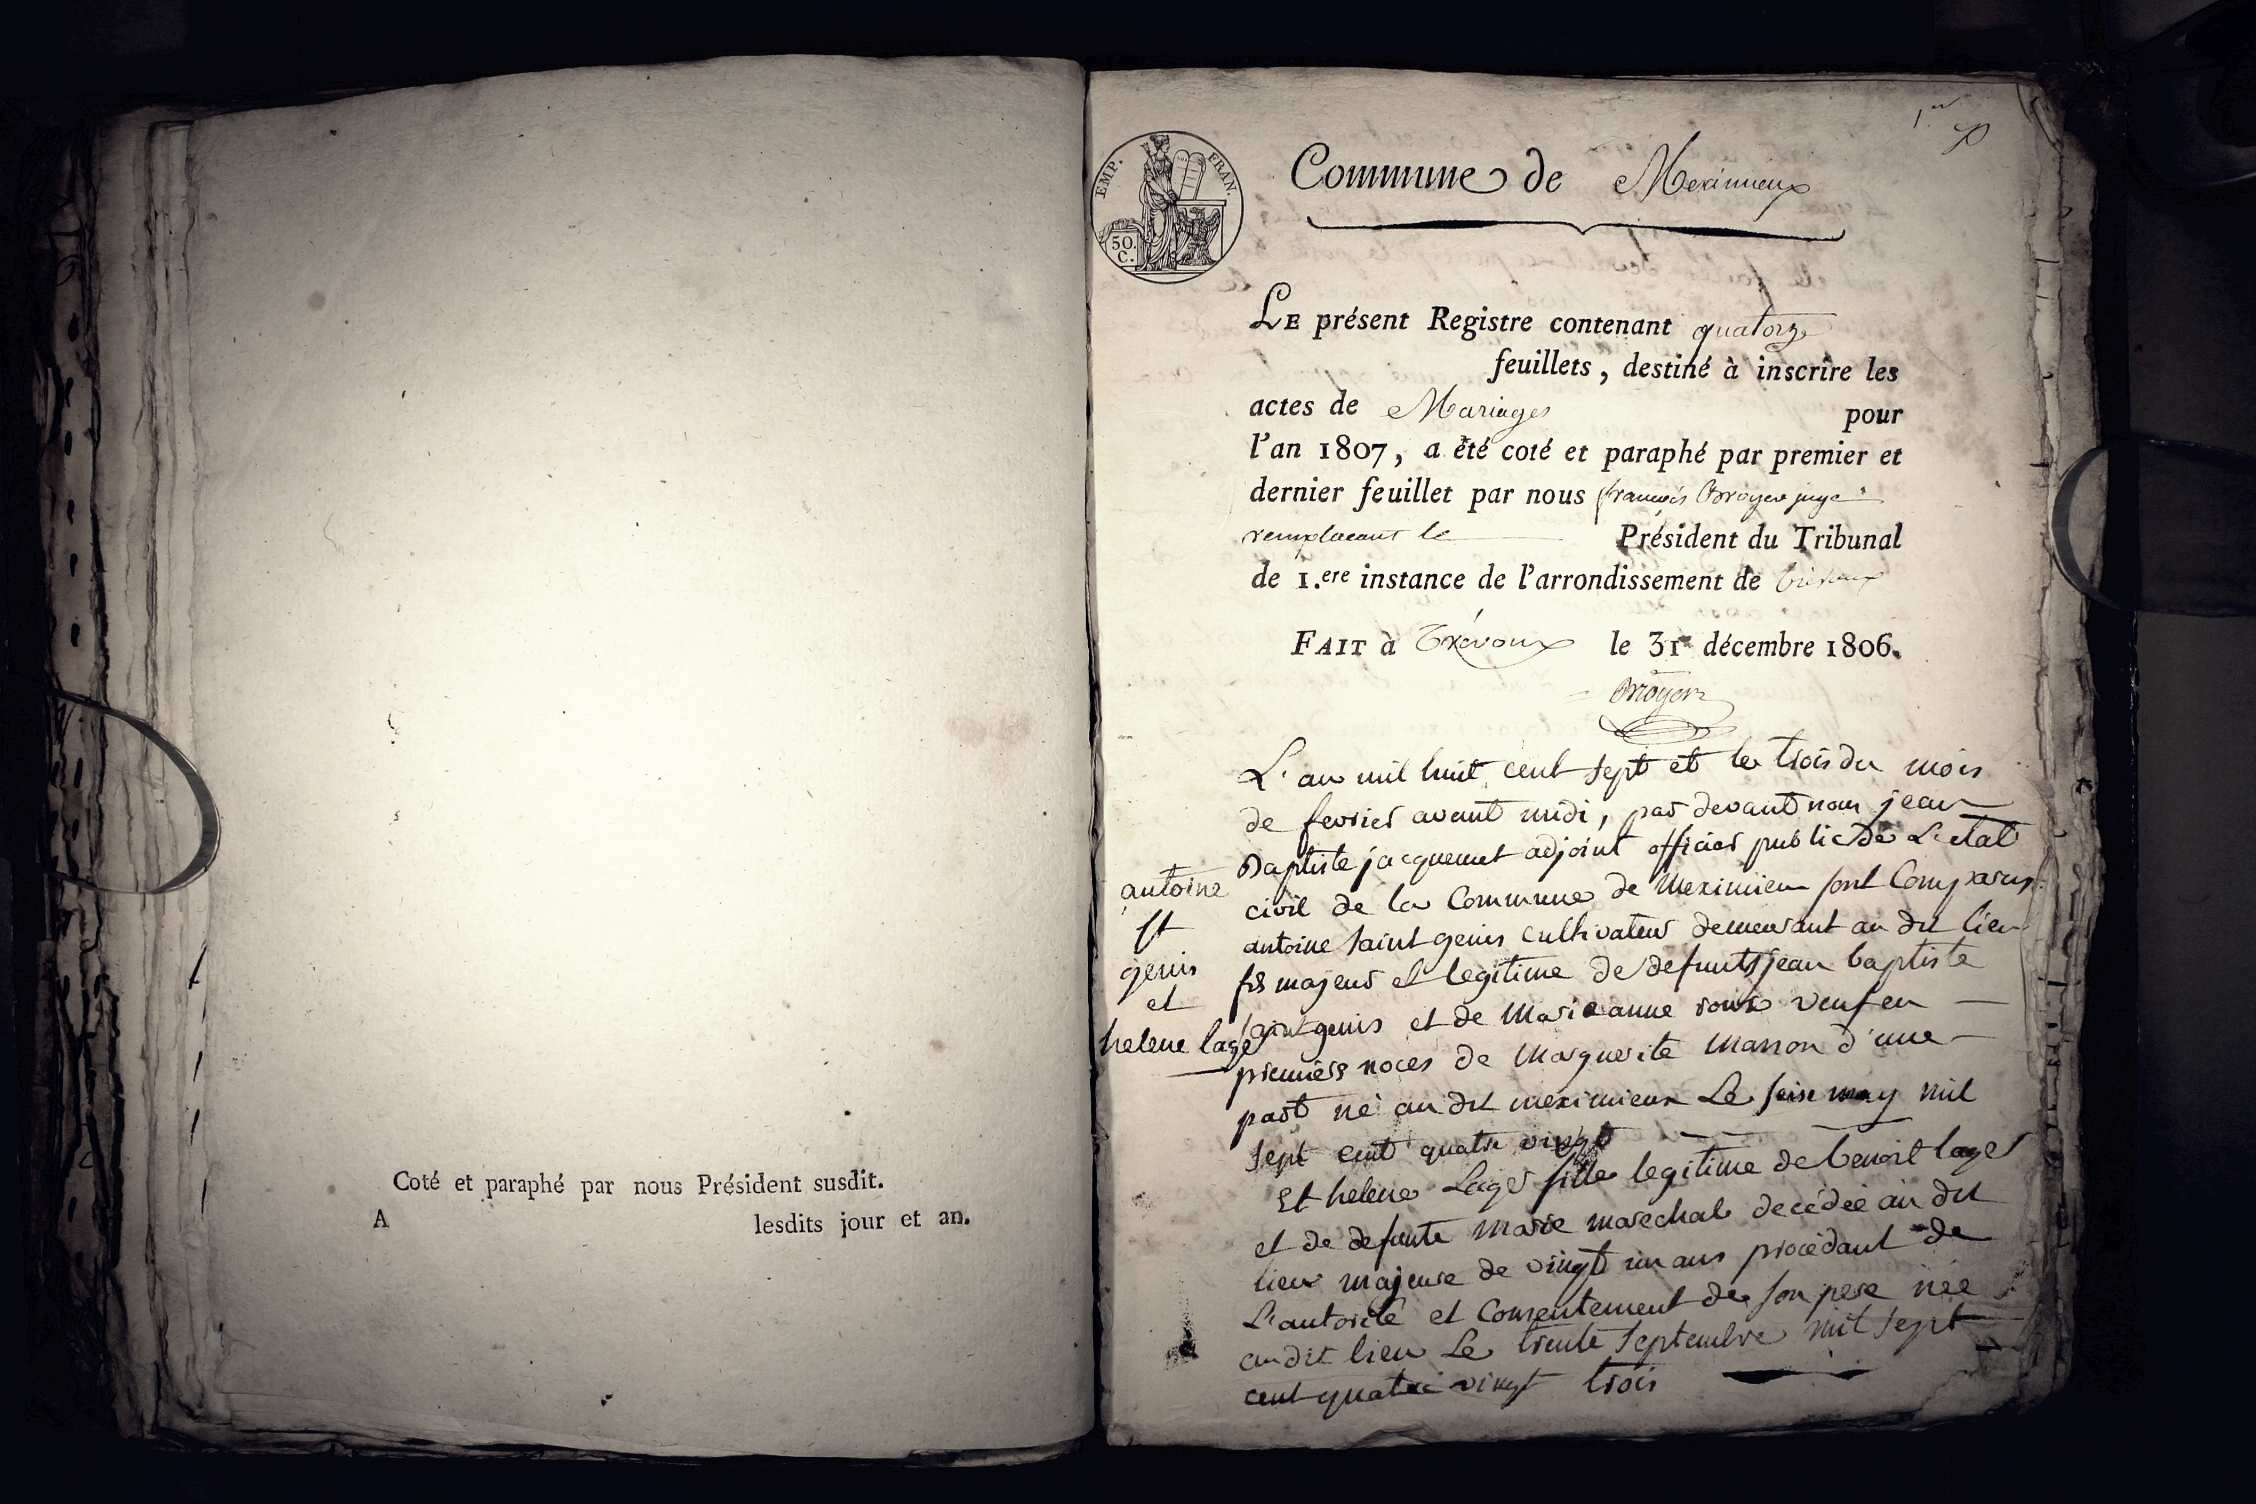 Coté et paraphé par nous Président susdit.
A lesdits jour et an.
1er
EMP. FRAN.
50.
C.
Commune de Meximieux
LE présent Registre contenant quatorze
feuillets, destiné à inscrire les
actes de Mariages pour
l'an 1807, a été coté et paraphé par premier et
dernier feuillet par nous françois Broyer juge
remplacant le Président du Tribunal
de 1.ere instance de l'arrondissement de Trévoux
FAIT à Trévoux le 31 décembre 1806.
Broyer
L'an mil huit cent sept et le trois du mois
de fevrier avant midi, par devant nous jean
Baptiste jacquemet adjoint officier public de L'etat
civil de la Commune de Meximieu sont Comparus
antoine saint genis cultivateur demeurant au dit lieu
fils majeur et legitime de defunts jean baptiste
saint genis et de Marieanne roux veuf en
premiere noces de Marguerite Manon d'une
part né au dit meximieux Le seise may mil
sept cent quatre vingt
Et helene Lager fille legitime de benoit lager
et de defunte Marie marechal decédée au dit
lieu majeure de vingt un ans procédant de
L'autorité et Consentement de son pere née
audit lieu Le trente septembre mil sept
cent quatre vingt trois
antoine
st
genis
et
helene lager